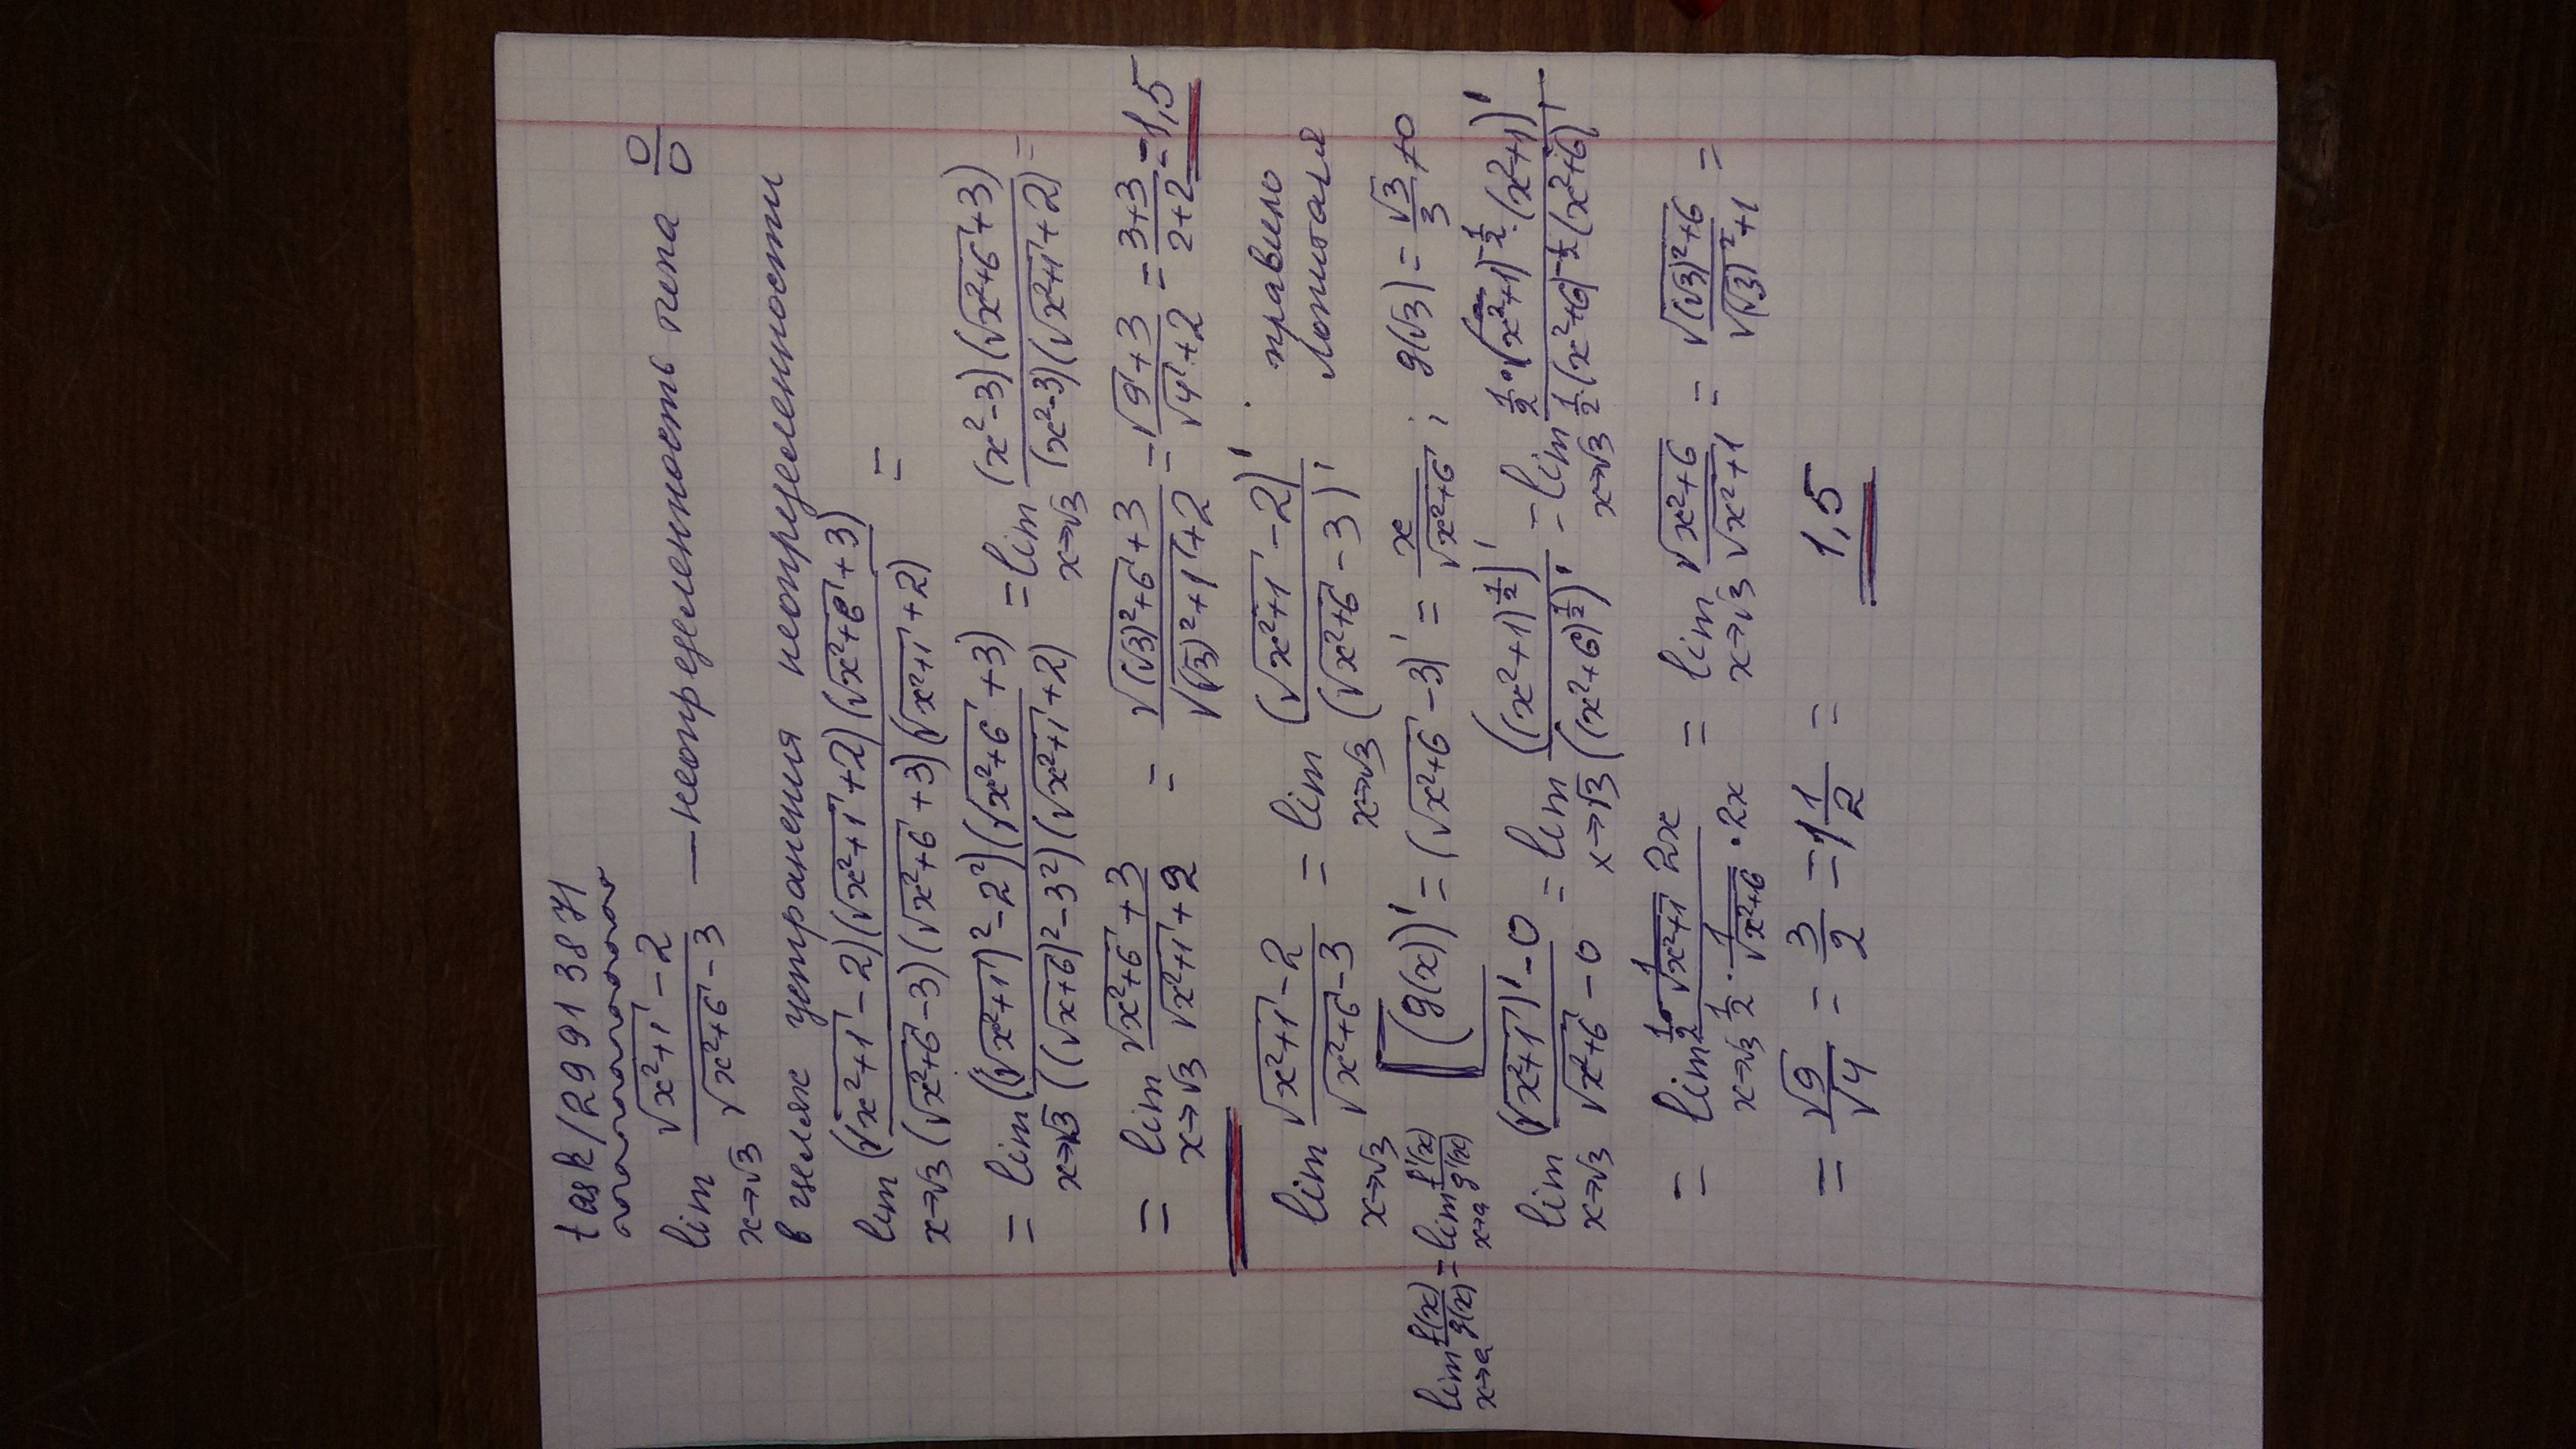 task/29913871
lim x→√3 (√(x²+1) - 2)/(√(x²+6) - 3) — неопределенность типа 0/0
в целях устранения неопределенности
lim x→√3 ((√(x²+1) - 2)(√(x²+1) + 2)(√(x²+6) + 3))/((√(x²+6) - 3)(√(x²+6) + 3)(√(x²+1) + 2)) =
= lim x→√3 (((√(x²+1))² - 2²)(√(x²+6) + 3))/(((√(x+6))² - 3²)(√(x²+1) + 2)) = lim x→√3 ((x² - 3)(√(x²+6) + 3))/((x² - 3)(√(x²+1) + 2)) =
= lim x→√3 (√(x²+6) + 3)/(√(x²+1) + 2) = (√((√3)²+6) + 3)/(√((√3)²+1) + 2) = (√9 + 3)/(√4 + 2) = (3+3)/(2+2) = 1,5
lim x→√3 (√(x²+1) - 2)/(√(x²+6) - 3) = lim x→√3 (√(x²+1) - 2)'/(√(x²+6) - 3)' . правило Лопиталя
lim x→a f(x)/g(x) = lim x→a f'(x)/g'(x) [(g(x))' = (√(x²+6) - 3)' = x/√(x²+6) ; g(√3) = √3/3 ≠ 0
lim x→√3 ((√(x²+1))' - 0)/(√(x²+6) - 0) = lim x→√3 ((x²+1)^(1/2))'/((x²+6)^(1/2))' = lim x→√3 (1/2 · (x²+1)^(-1/2) · (x²+1)')/(1/2 · (x²+6)^(-1/2) (x²+6)')
= lim x→√3 (1/2 · 1/√(x²+1) 2x)/(1/2 · 1/√(x²+6) · 2x) = lim x→√3 √(x²+6)/√(x²+1) = √((√3)²+6)/√((√3)²+1) =
= √9/√4 = 3/2 = 1 1/2 = 1,5